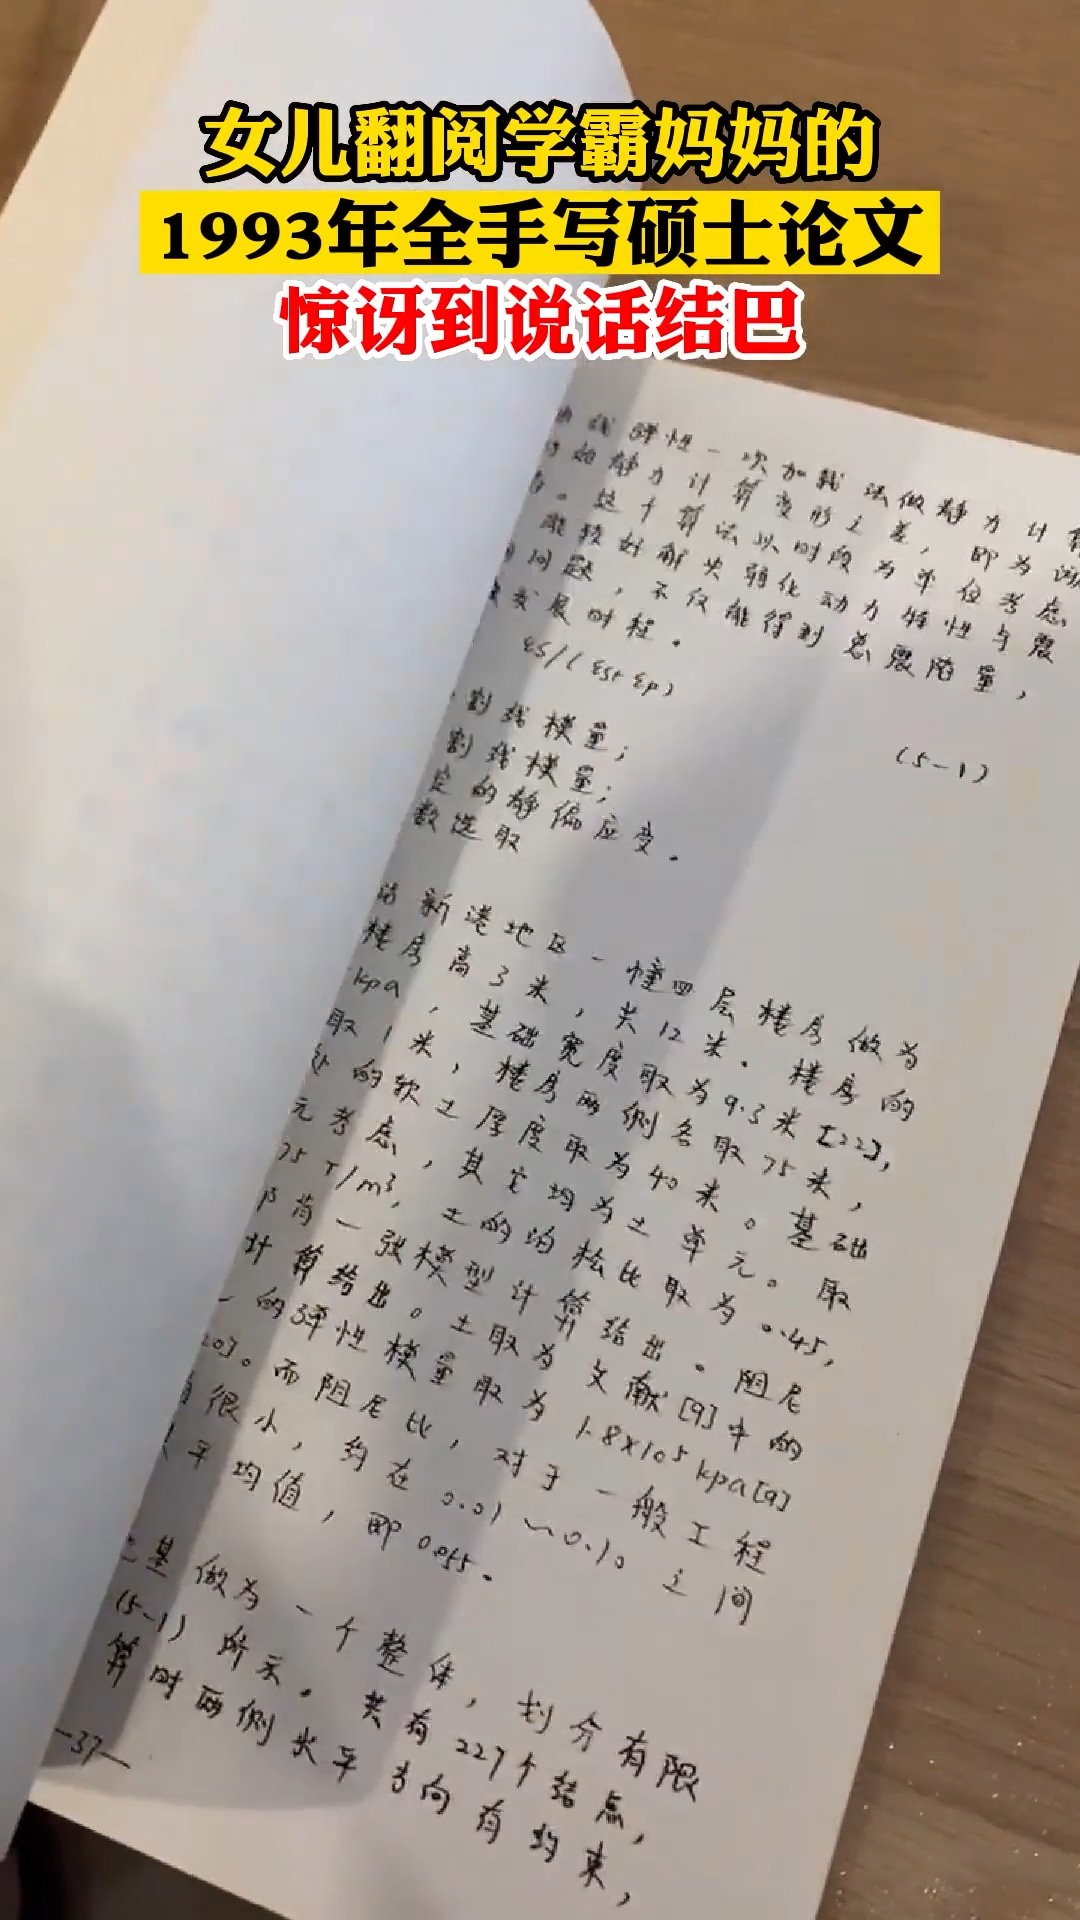 女儿翻阅学霸妈妈的
1993年全手写硕士论文
惊讶到说话结巴
线弹性一次加载法做静力计算
始静力计算变形之差，即为
。这个算法以时段为单位考虑
能较好解决弱化动力特性与震
问题，不仅能得到总震陷量，
发展时程。
εs/(εs+εp)
(5-1)
割线模量；
割线模量；
定的静偏应变。
数选取
新港地区一幢四层楼房做为
楼房高3米，共12米。楼房的
kpa，基础宽度取为9.3米[22],
取1米，楼房两侧各取75米，
的软土厚度取为40米。基础
元考虑，其它均为土单元。取
75T/m³，土的泊松比取为0.45,
肖一张模型计算给出。阻尼
计算给出。土取为文献[9]中的
的弹性模量取为1.8×105kpa[9]
20]。而阻尼比，对于一般工程
很小，约在0.01～0.10之间
平均值，即0.055。
基做为一个整体，划分有限
(5-1)所示。共有227个结点，
算时两侧水平方向有约束，
—37—